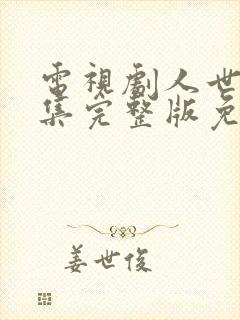 電視劇人世
集完整版免
姜世俊